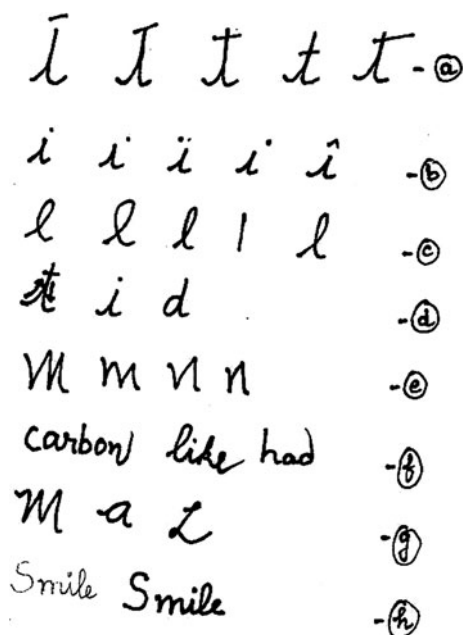 t t t t t - a
i i i i i - b
l l l l l - c
t i d - d
m m n n - e
carbon like had - f
M a L - g
Smile Smile - h